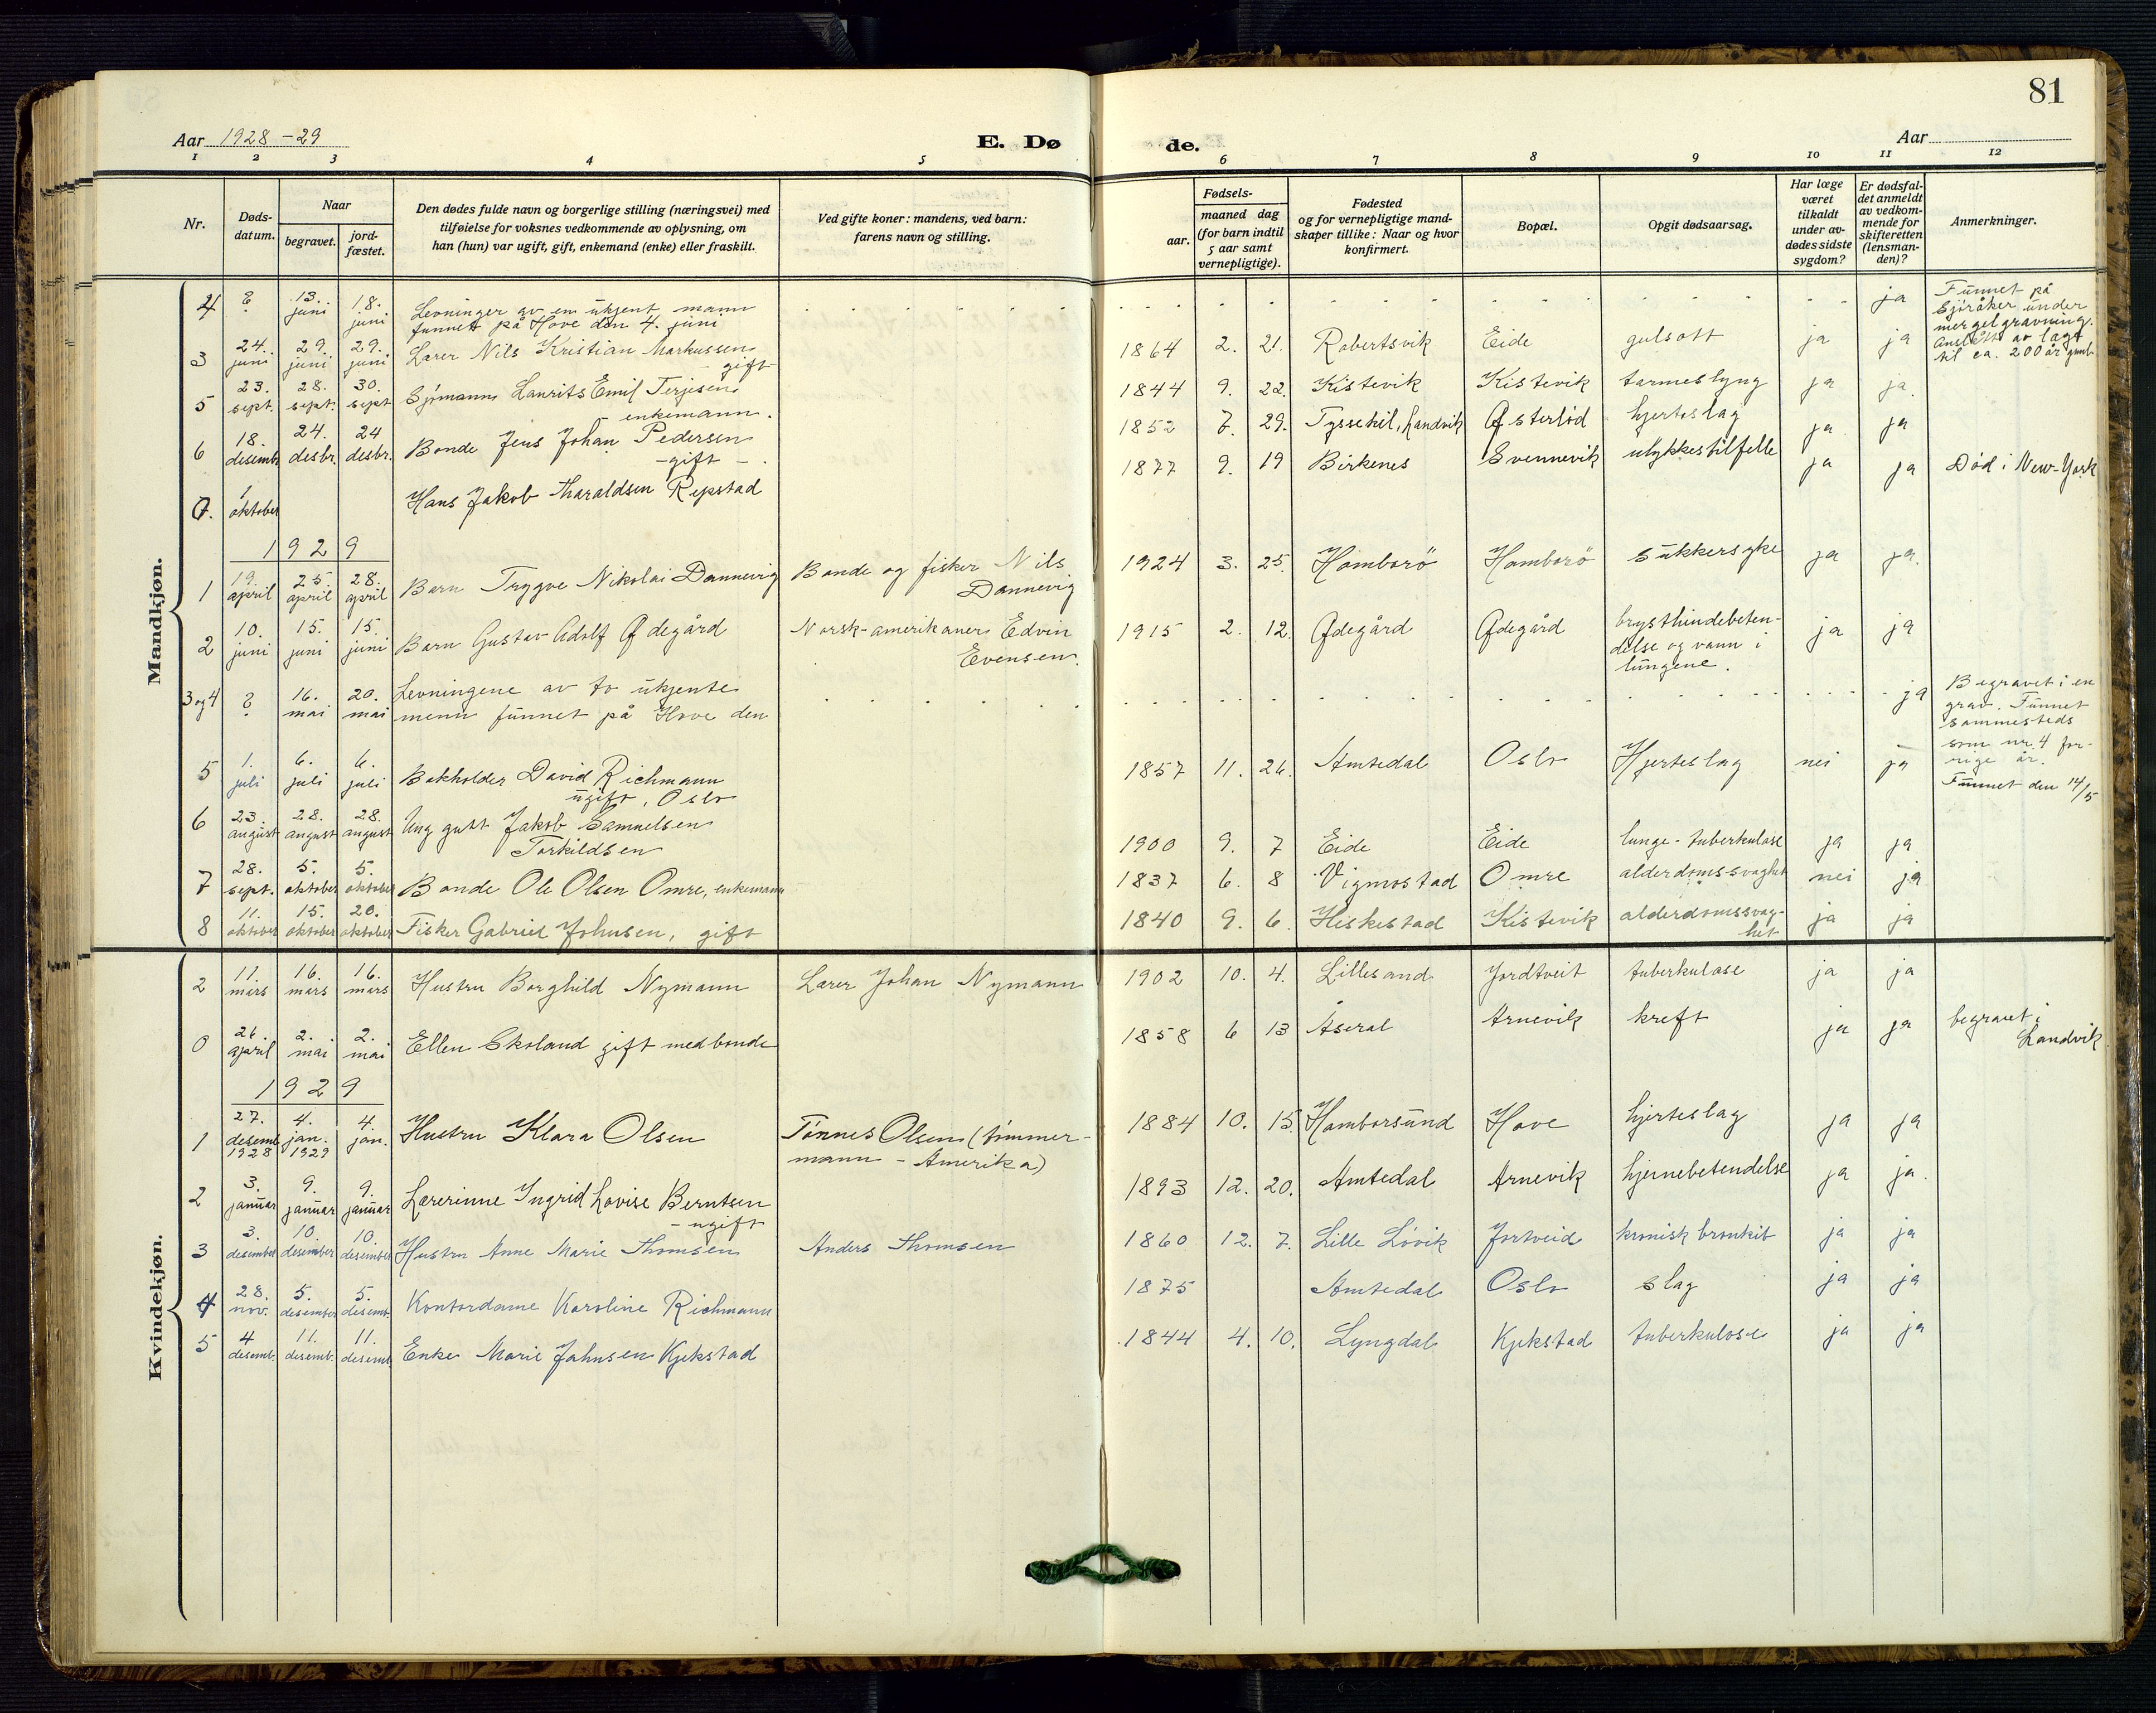 81
Aar 1928 – 29 E. Dø de. Aar
1 2 3 4 5 6 7 8 9 10 11 12
Nr.
Døds-
datum.
Naar
begravet.
jord-
fæstet.
Den dødes fulde navn og borgerlige stilling (næringsvei) med
tilføielse for voksnes vedkommende av oplysning, om
han (hun) var ugift, gift, enkemand (enke) eller fraskilt.
Ved gifte koner: mandens, ved barn:
farens navn og stilling.
Fødsels-
aar.
maaned dag
(for barn indtil
5 aar samt
vernepligtige).
Fødested
og for vernepligtige mand-
skaper tillike: Naar og hvor
konfirmert.
Bopæl.
Opgit dødsaarsag.
Har læge
været
tilkaldt
under av-
dødes sidste
sygdom?
Er dødsfal-
det anmeldt
av vedkom-
mende for
skifteretten
(lensman-
den)?
Anmerkninger.
Mandkjøn.
4 ? 13. juni 18. juni Levninger av en ukjent mann
funnet på Hove den 4. juni ja Funnet på
Sjøråker under
mergelgravning.
Anslått av læge
til ca. 200 år gml.
3 24. juni 29. juni 29. juni Lærer Nils Kristian Markussen
gift 1864 2. 21. Robertsvik Eide gulsott ja ja
5 23. sept. 28. sept. 30. sept Sjømann Laurits Emil Terjesen
– enkemann. 1844 9. 22. Kistevik Kistevik tarmeslyng ja ja.
6 18. desemb. 24. desbr. 24 desbr. Bonde Jens Johan Pedersen
– gift – . 1852 7. 29. Tyssekil, Landvik Østerlod hjerteslag ja ja
7. 1 oktober Hans Jakob Tharaldsen Repstad 1877 9. 19 Birkenes Svennevik ulykkestilfelle ja ja Død i New-York
1929
1 19. april 25. april 28. april Barn Trygve Nikolai Dannevig Bonde og fisker Nils
Dannevig 1924 3. 25. Homborö Homborö sukkersyke ja ja.
2 10. juni 15. juni 15. juni Barn Gustav Adolf Ødegård Norsk-amerikaner Edvin
Evensen. 1915 2. 12. Ødegård Ødegård brysthindebeten-
delse og vann i
lungene. ja ja
3 og 4 ? 16. mai 20. mai Levningene av to ukjente
menn funnet på Hove den ja Begravet i en
grav. Funnet
sammesteds
som nr. 4 for-
rige år.
Funnet den 14/5
5 1. juli 6. juli 6. juli Bokholder David Richmann
ugift, Oslo 1857 11. 26. Amtedal Oslo Hjerteslag nei ja
6 23. august 28. august 28. august Ung gutt Jakob Samuelsen
Torkildsen 1900 9. 7 Eide Eide lunge-tuberkulose ja ja
7 28. sept. 5. oktober 5. oktober Bonde Ole Olsen Omre, enkemann 1837 6. 8 Vigmostad Omre alderdomssvaghet nei ja
8 11. oktober 15. oktober 20. oktober Fisker Gabriel Johnsen, gift 1840 9. 6. Heskestad Kistevik alderdomssvag-
het ja ja
Kvindekjøn.
2 11. mars 16. mars 16. mars Hustru Borghild Nymann Lærer Johan Nymann 1902 10. 4. Lillesand Jordtveit tuberkulose ja ja
0 26. april 2. mai 2. mai Ellen Skoland gift med bonde 1858 6 13 Åseral Arnevik kreft ja ja begravet i
Landvik
1929
1 27. desemb 1928 4. jan. 1929 4. jan. Hustru Klara Olsen Tønnes Olsen (tømmer-
mann – Amerika) 1884 10. 15. Homborsund Hove hjerteslag ja ja
2 3. januar 9. januar 9. januar Lærerinne Ingrid Lovise Berntsen
– ugift 1893 12. 20. Amtedal Arnevik hjernebetendelse ja ja.
3 3. desember 10. desember 10. desember Hustru Anne Marie Thomsen Anders Thomsen 1860 12. 7. Lille Løvik Jortveid kronisk bronkit ja ja
4 28. nov. 5. desember 5. desemb. Kontordame Karoline Richmann 1875 Amtedal Oslo slag ja ja
5 4 desemb. 11. desemb. 11. desemb. Enke Marie Johnsen Kjekstad 1844 4. 10. Lyngdal Kjekstad tuberkulose ja ja